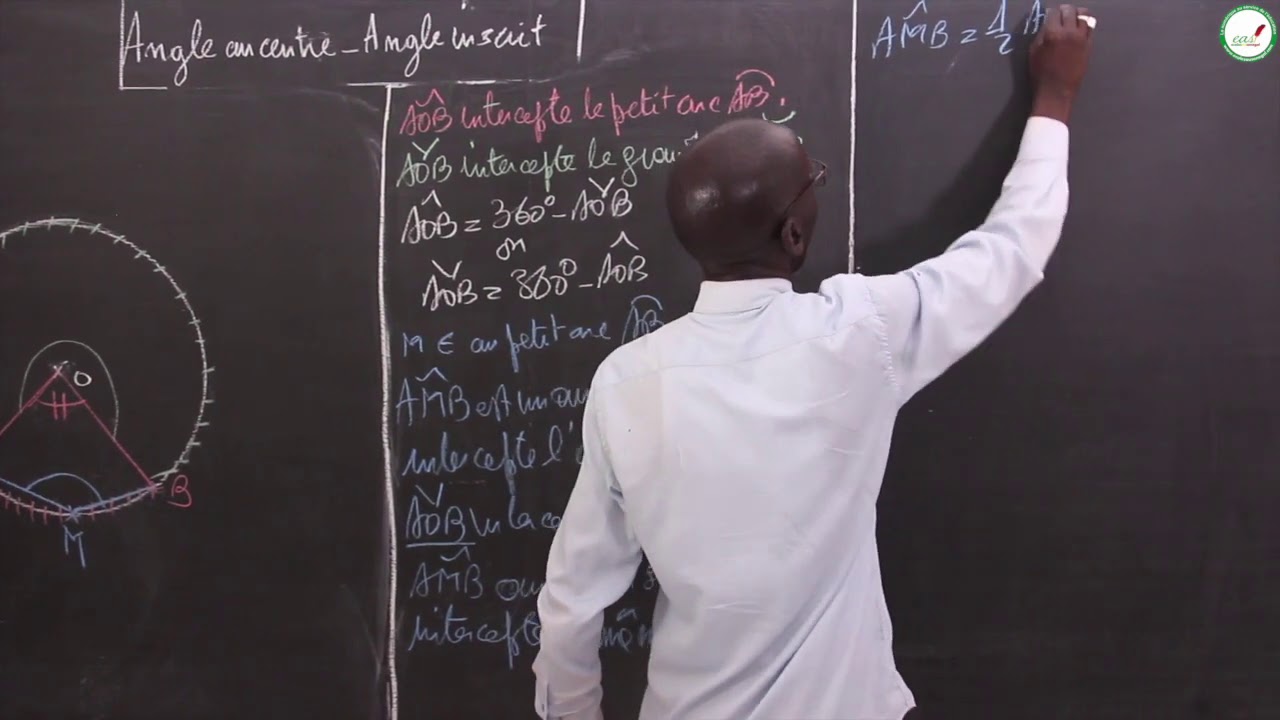 Angle au centre - Angle inscrit
AÔB intercepte le petit arc AB.
AǑB intercepte le
AÔB = 360° - AǑB
ou
AǑB = 360° - AÔB
M ∈ au petit arc AB
AM̂B est un
intercepte l'
AǑB
AM̂B
intercepte
O
B
M
AM̂B = 1/2 A
eas!